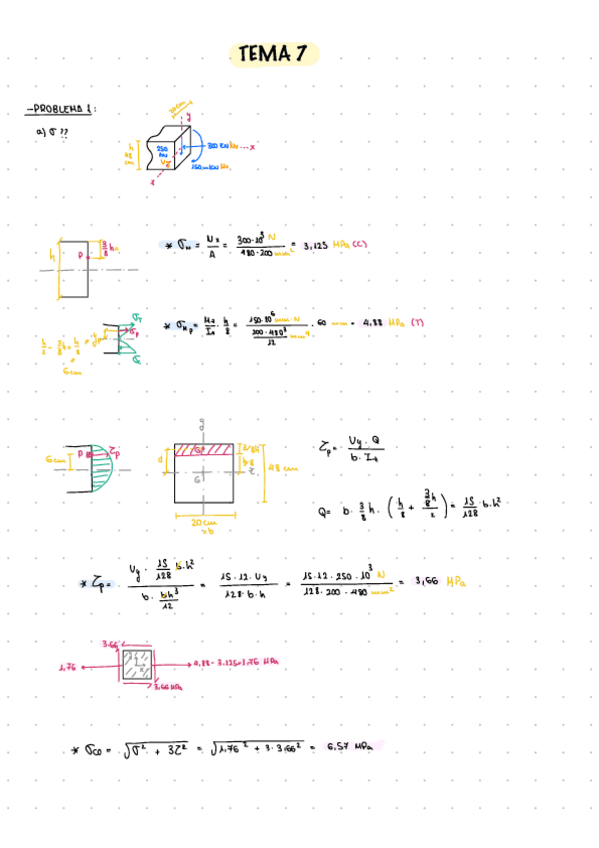 TEMA 7
-PROBLEMA 1:
a) σ ??
20 cm
y
h
48 cm
250 kN
Vy
300 kN
x
z
h
P
3/8 h
* σN = Nx/A = 300·10³ N / 480·200 mm² = 3,125 MPa (C)
h/2 - 3/8 h = h/8 = 6cm
σp
* σMp = Mz/Iz · h/8 = 150·10⁶ mm·N / (200·480³/12 mm⁴) · 60 mm = 4,88 MPa (T)
6cm
P
τp
d
G
48 cm
20 cm = b
τp = Vy · Q / b · Iz
Q = b · 3/8 h · (h/8 + 3/8h/2) = 15/128 · b·h²
* τp = Vy · 15/128 b·h² / b · bh³/12 = 15·12·Vy / 128·b·h = 15·12·250·10³ N / 128·200·480 mm² = 3,66 MPa
3.66
1,76
4,88 - 3,125=1,76 MPa
3,66 MPa
* σco = √σ² + 3τ² = √1,76² + 3·3,66² = 6,57 MPa